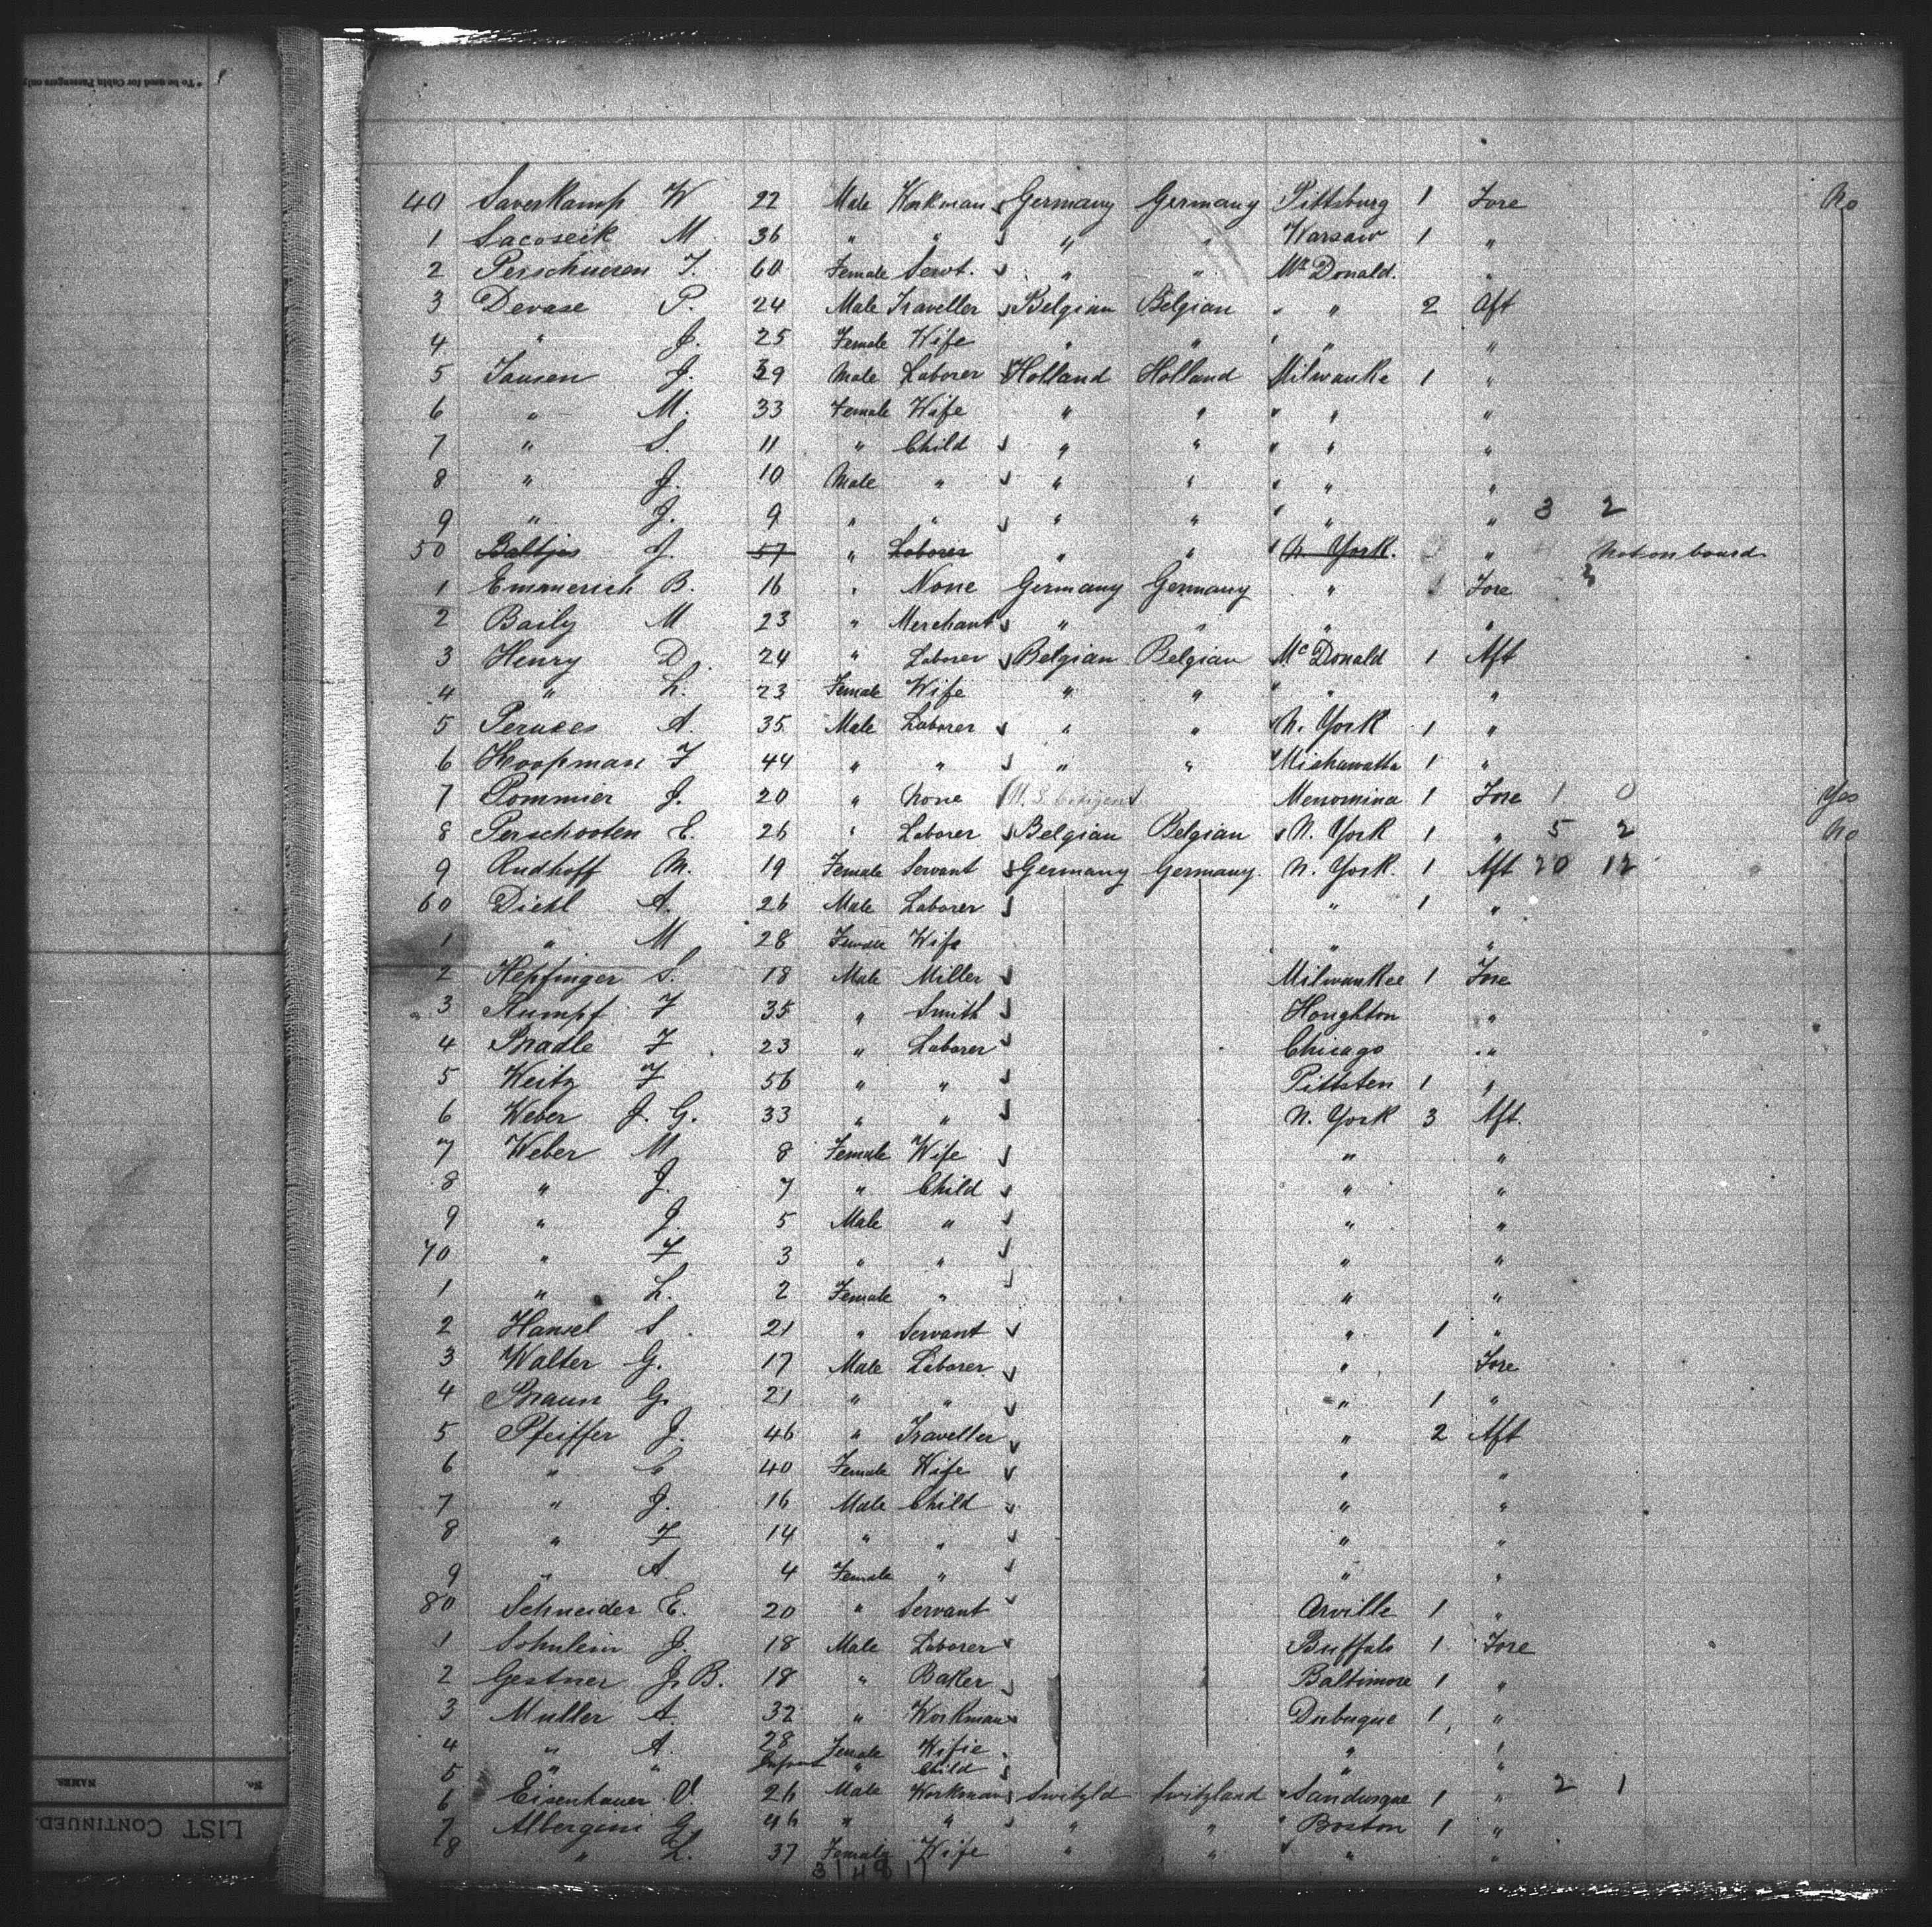 * To be used for Cabin Passengers only
40 Saverkamp W 22 Male Workman Germany Germany Pittsburg 1 Fore No
1 Sacoseik M. 36 " " " " Warsaw 1 "
2 Perschueren F. 60 Female Servt. " " Mc Donald. "
3 Devase P. 24 Male Traveller Belgian Belgian " " 2 Aft
4 " J. 25 Female Wife " " " " "
5 Jansen J. 39 Male Laborer Holland Holland Milwauke 1 "
6 " M. 33 Female Wife " " " " "
7 " S. 11 " Child " " " " "
8 " J. 10 Male " " " " " "
9 " J. 9 " " " " " " " 3 2
50 Baltjes J. 57 " Laborer " " N. York. " Not on board
1 Emmerich B. 16 " None Germany Germany " 1 Fore
2 Baily M 23 " Merchant " " " "
3 Henry D. 24 " Laborer Belgian Belgian Mc Donald 1 Aft
4 " L. 23 Female Wife " " " " "
5 Peruces A. 35 Male Laborer " " N. York 1 "
6 Koopman F 44 " " " " Mishawatta 1 "
7 Pommier J. 20 " None U.S. Citizen Menomina 1 Fore 1 0 Yes
8 Perschooten E. 26 " Laborer Belgian Belgian N. York 1 " 5 2 No
9 Rudhoff M. 19 Female Servant Germany Germany. N. York. 1 Aft 20 12
60 Diehl A. 26 Male Laborer " 1 "
1 " M 28 Female Wife " "
2 Hepfinger S. 18 Male Miller Milwaukee 1 Fore
3 Rumpf F 35 " Smith Houghton "
4 Bradle F 23 " Laborer Chicago "
5 Weitz F 56 " " Pittsten 1 "
6 Weber J. G. 33 " " N. York 3 Aft.
7 Weber M 8 Female Wife " "
8 " J. 7 " Child " "
9 " J. 5 Male " " "
70 " F 3 " " " "
1 " L. 2 Female " " "
2 Hansel S. 21 " Servant " 1 "
3 Walter G. 17 Male Laborer " Fore
4 Braun G. 21 " " " 1 "
5 Pfeiffer J. 46 " Traveller " 2 Aft
6 " C 40 Female Wife " "
7 " J. 16 Male Child " "
8 " F 14 " " " "
9 " A. 4 Female " " "
80 Schneider E. 20 " Servant Orville 1 "
1 Sohnlein J. 18 Male Laborer Buffalo 1 Fore
2 Gestner J. B. 18 " Baker Baltimore 1 "
3 Muller A. 32 " Workman Dubuque 1 "
4 " A. 28 Female Wifie " "
5 " " Infant " Child " "
6 Eisenhauer O. 26 Male Workman Switzld Switzland Sandusque 1 " 2 1
7 Albergini G. 46 " " " " " Boston 1 "
8 " L. 37 Female Wife " " " "
3 1 4 8 17
No. NAMES.
LIST CONTINUED.